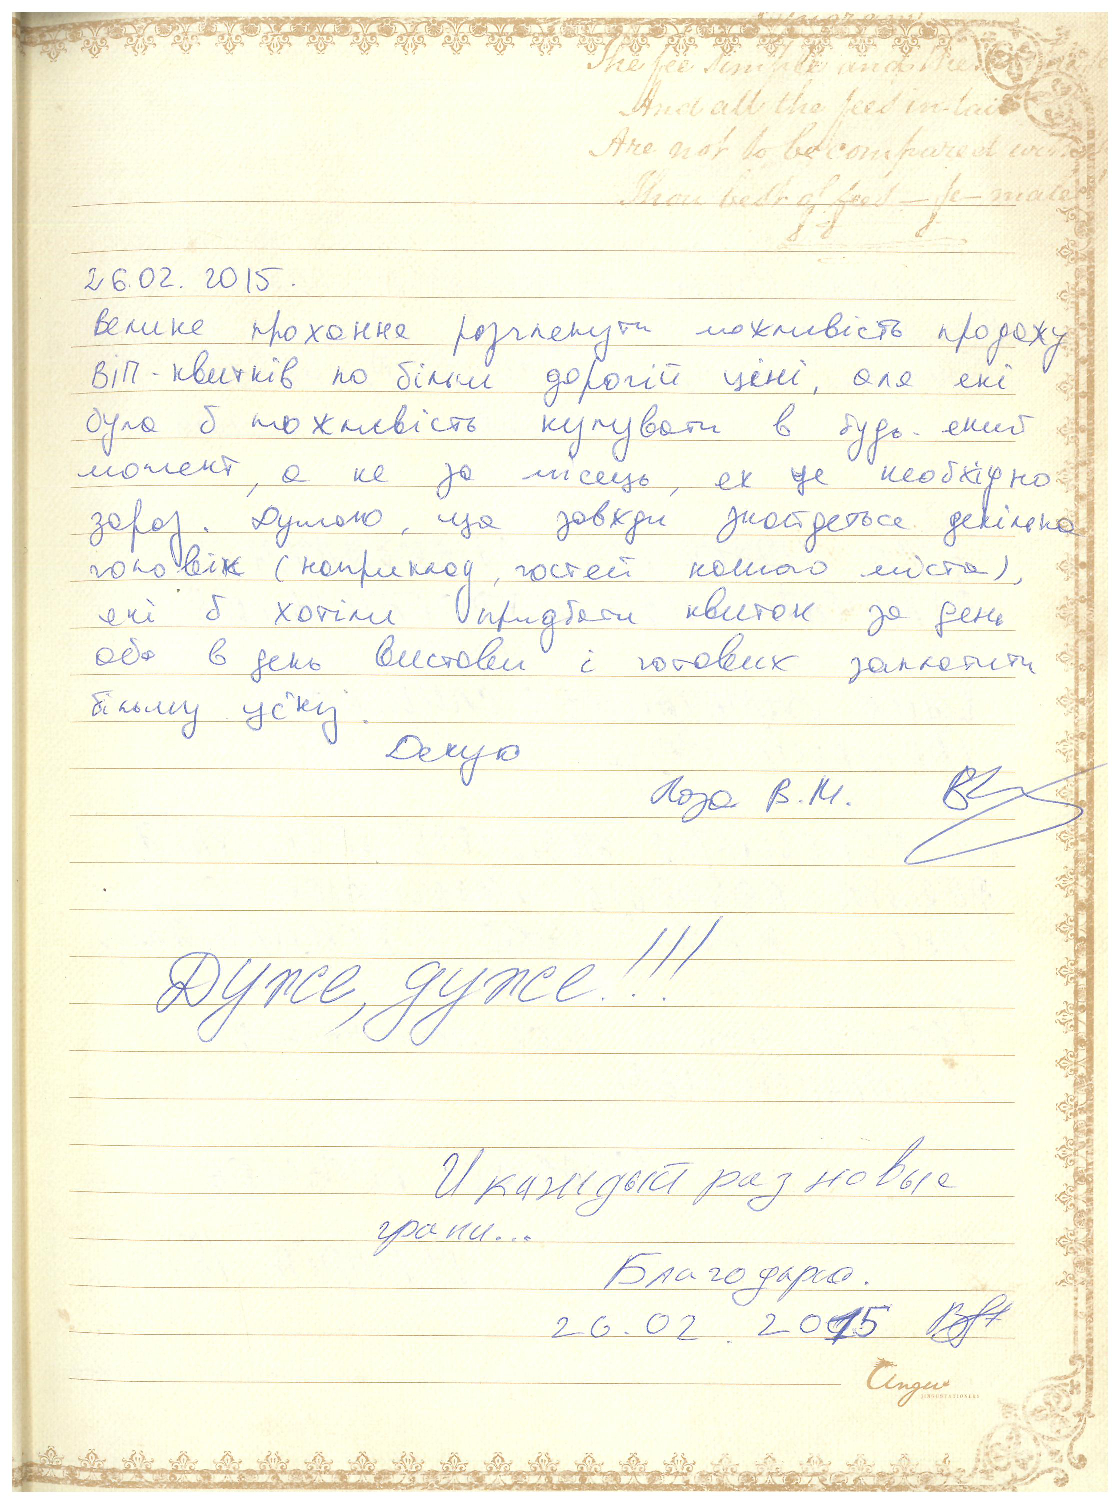 The fee simple and the
And all the fees in-tail
Are not to be compared with
Thou best of fees — fe-male
26.02.2015.
Велике прохання розглянути можливість продажу
ВІП-квитків по більш дорогій ціні, але які
була б можливість купувати в будь-який
момент, а не за місяць, як це необхідно
зараз. Думаю, що завжди знайдеться декілька
чоловік (наприклад, гостей нашого міста),
які б хотіли придбати квиток за день
або в день вистави і готових заплатити
більшу ціну.
Дякую
Лоза В.М.
Дуже, дуже!!!
И каждый раз новые
грани...
Благодарю.
26.02.2015